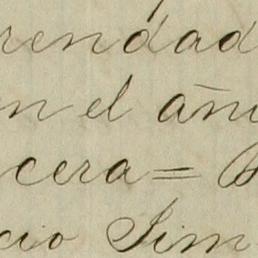 rendad
n el añ
cera =
cio Sim